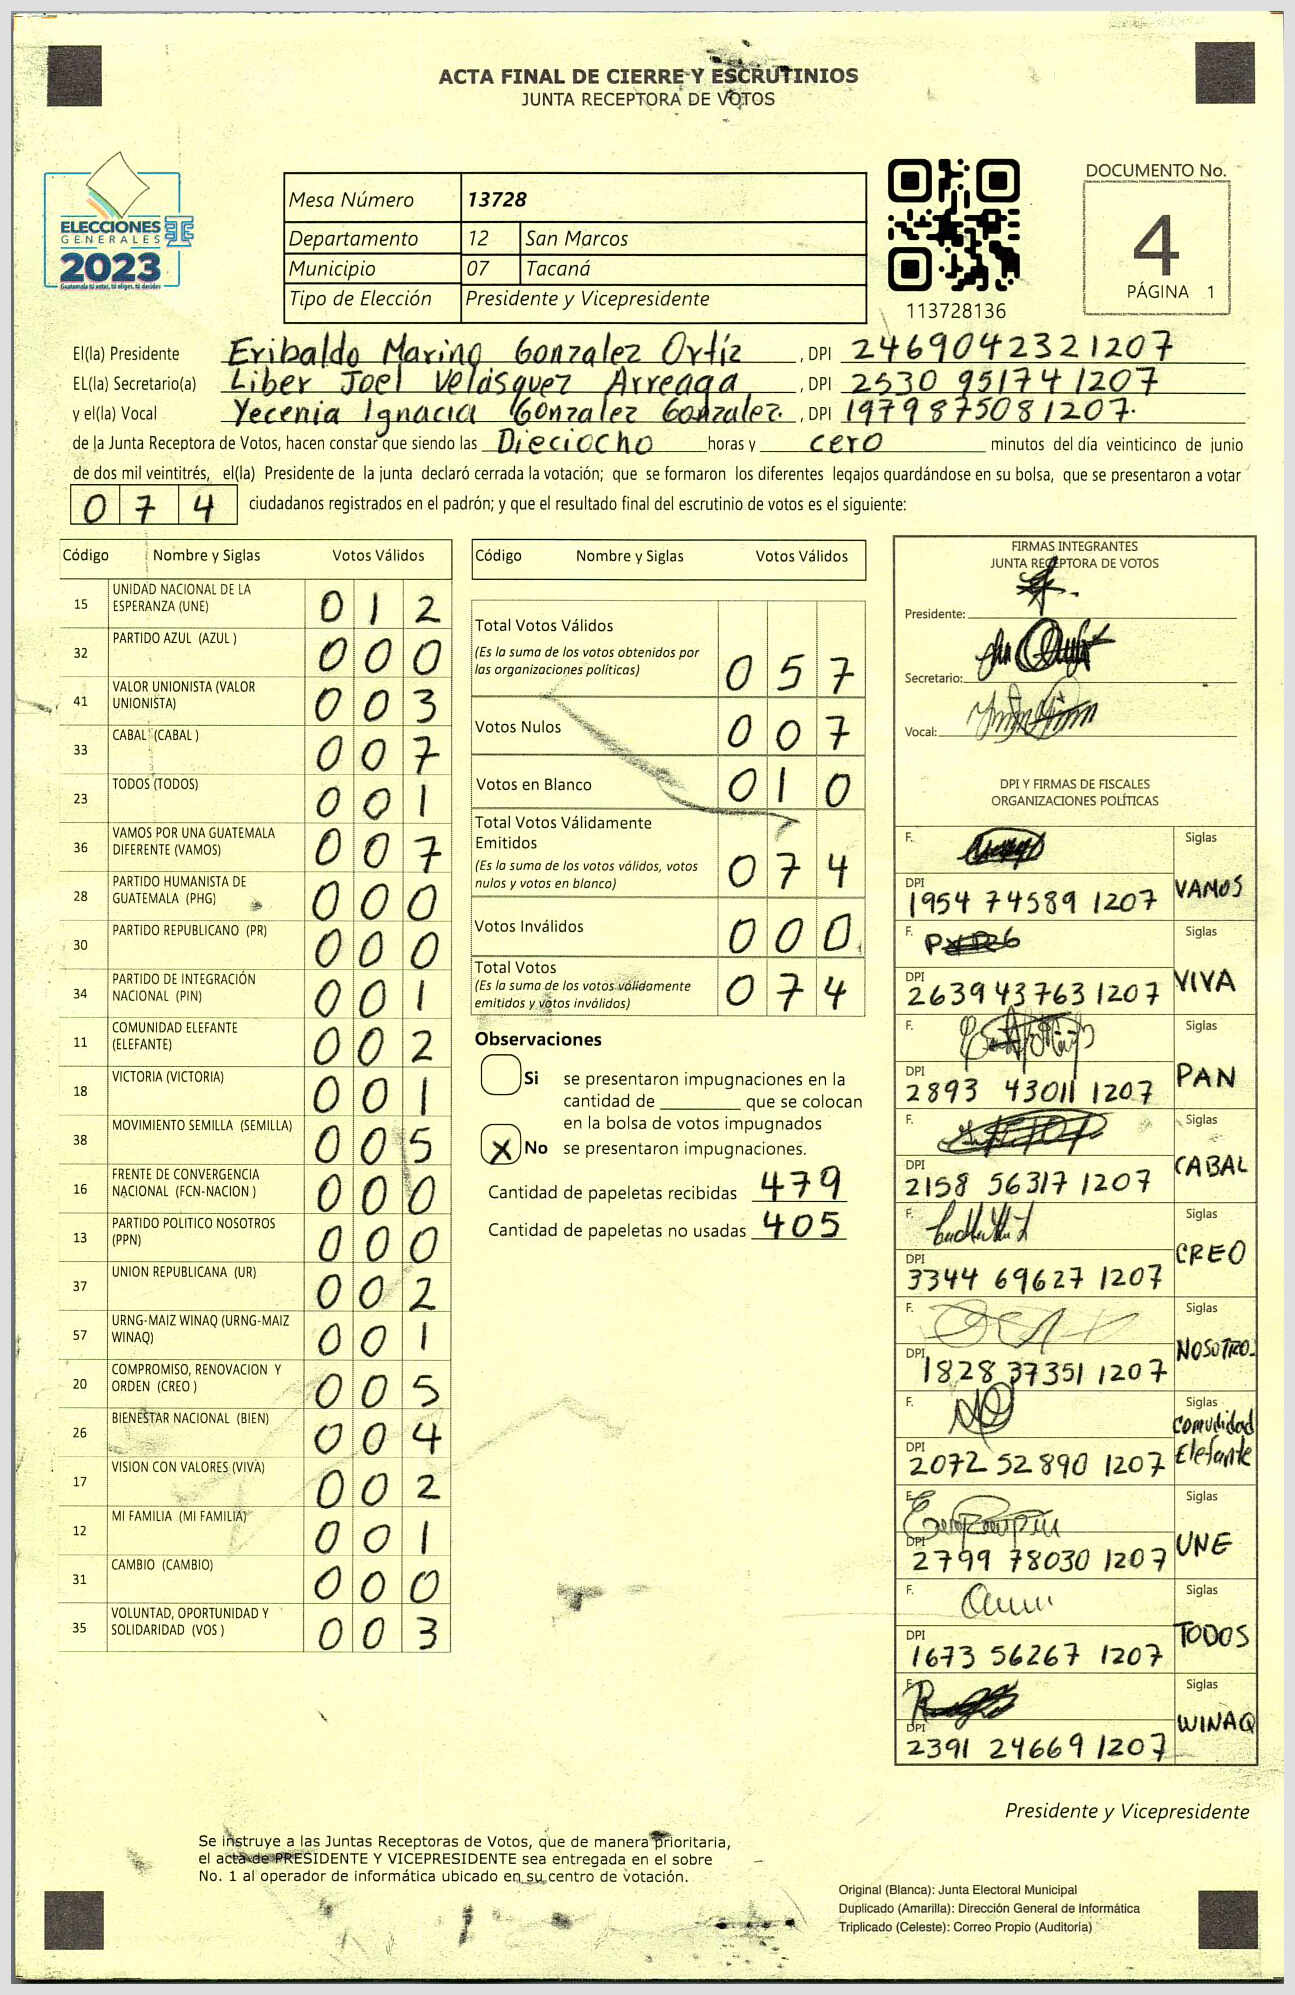 ACTA FINAL DE CIERRE Y ESCRUTINIOS
JUNTA RECEPTORA DE VOTOS
ELECCIONES
GENERALES
2023
Guatemala tú votas, tú eliges, tú decides
Mesa Número 13728
Departamento 12 San Marcos
Municipio 07 Tacaná
Tipo de Elección Presidente y Vicepresidente
113728136
DOCUMENTO No.
4
PÁGINA 1
El(la) Presidente Eribaldo Marino Gonzalez Ortíz, DPI 2469042321207
EL(la) Secretario(a) Liber Joel Velásquez Arreaga, DPI 2530 95174 1207
y el(la) Vocal Yecenia Ignacia Gonzalez Gonzalez., DPI 1979875081207.
de la Junta Receptora de Votos, hacen constar que siendo las Dieciocho horas y cero minutos del día veinticinco de junio
de dos mil veintitrés, el(la) Presidente de la junta declaró cerrada la votación; que se formaron los diferentes legajos guardándose en su bolsa, que se presentaron a votar
074 ciudadanos registrados en el padrón; y que el resultado final del escrutinio de votos es el siguiente:
Código Nombre y Siglas Votos Válidos
15 UNIDAD NACIONAL DE LA ESPERANZA (UNE) 012
32 PARTIDO AZUL (AZUL ) 000
41 VALOR UNIONISTA (VALOR UNIONISTA) 003
33 CABAL (CABAL ) 007
23 TODOS (TODOS) 001
36 VAMOS POR UNA GUATEMALA DIFERENTE (VAMOS) 007
28 PARTIDO HUMANISTA DE GUATEMALA (PHG) 000
30 PARTIDO REPUBLICANO (PR) 000
34 PARTIDO DE INTEGRACIÓN NACIONAL (PIN) 001
11 COMUNIDAD ELEFANTE (ELEFANTE) 002
18 VICTORIA (VICTORIA) 001
38 MOVIMIENTO SEMILLA (SEMILLA) 005
16 FRENTE DE CONVERGENCIA NACIONAL (FCN-NACION ) 000
13 PARTIDO POLITICO NOSOTROS (PPN) 000
37 UNION REPUBLICANA (UR) 002
57 URNG-MAIZ WINAQ (URNG-MAIZ WINAQ) 001
20 COMPROMISO, RENOVACION Y ORDEN (CREO ) 005
26 BIENESTAR NACIONAL (BIEN) 004
17 VISION CON VALORES (VIVA) 002
12 MI FAMILIA (MI FAMILIA) 001
31 CAMBIO (CAMBIO) 000
35 VOLUNTAD, OPORTUNIDAD Y SOLIDARIDAD (VOS ) 003
Código Nombre y Siglas Votos Válidos
Total Votos Válidos
(Es la suma de los votos obtenidos por
las organizaciones políticas) 057
Votos Nulos 007
Votos en Blanco 010
Total Votos Válidamente
Emitidos
(Es la suma de los votos válidos, votos
nulos y votos en blanco) 074
Votos Inválidos 000
Total Votos
(Es la suma de los votos válidamente
emitidos y votos inválidos) 074
Observaciones
Si se presentaron impugnaciones en la
cantidad de ________ que se colocan
en la bolsa de votos impugnados
X No se presentaron impugnaciones.
Cantidad de papeletas recibidas 479
Cantidad de papeletas no usadas 405
FIRMAS INTEGRANTES
JUNTA RECEPTORA DE VOTOS
Presidente:
Secretario:
Vocal:
DPI Y FIRMAS DE FISCALES
ORGANIZACIONES POLÍTICAS
F. Siglas
DPI 1954 74589 1207 VAMOS
F. Siglas
DPI 2639437631207 VIVA
F. Siglas
DPI 2893 43011 1207 PAN
F. Siglas
DPI 2158 56317 1207 CABAL
F. Siglas
DPI 3344 69627 1207 CREO
F. Siglas
DPI 1828 37351 1207 NOSOTRO
F. Siglas
DPI 2072 52890 1207 Comunidad Elefante
F. Siglas
DPI 2799 78030 1207 UNE
F. Siglas
DPI 1673 56267 1207 TODOS
F. Siglas
DPI 2391 24669 1207 WINAQ
Presidente y Vicepresidente
Se instruye a las Juntas Receptoras de Votos, que de manera prioritaria,
el acta de PRESIDENTE Y VICEPRESIDENTE sea entregada en el sobre
No. 1 al operador de informática ubicado en su centro de votación.
Original (Blanca): Junta Electoral Municipal
Duplicado (Amarilla): Dirección General de Informática
Triplicado (Celeste): Correo Propio (Auditoría)